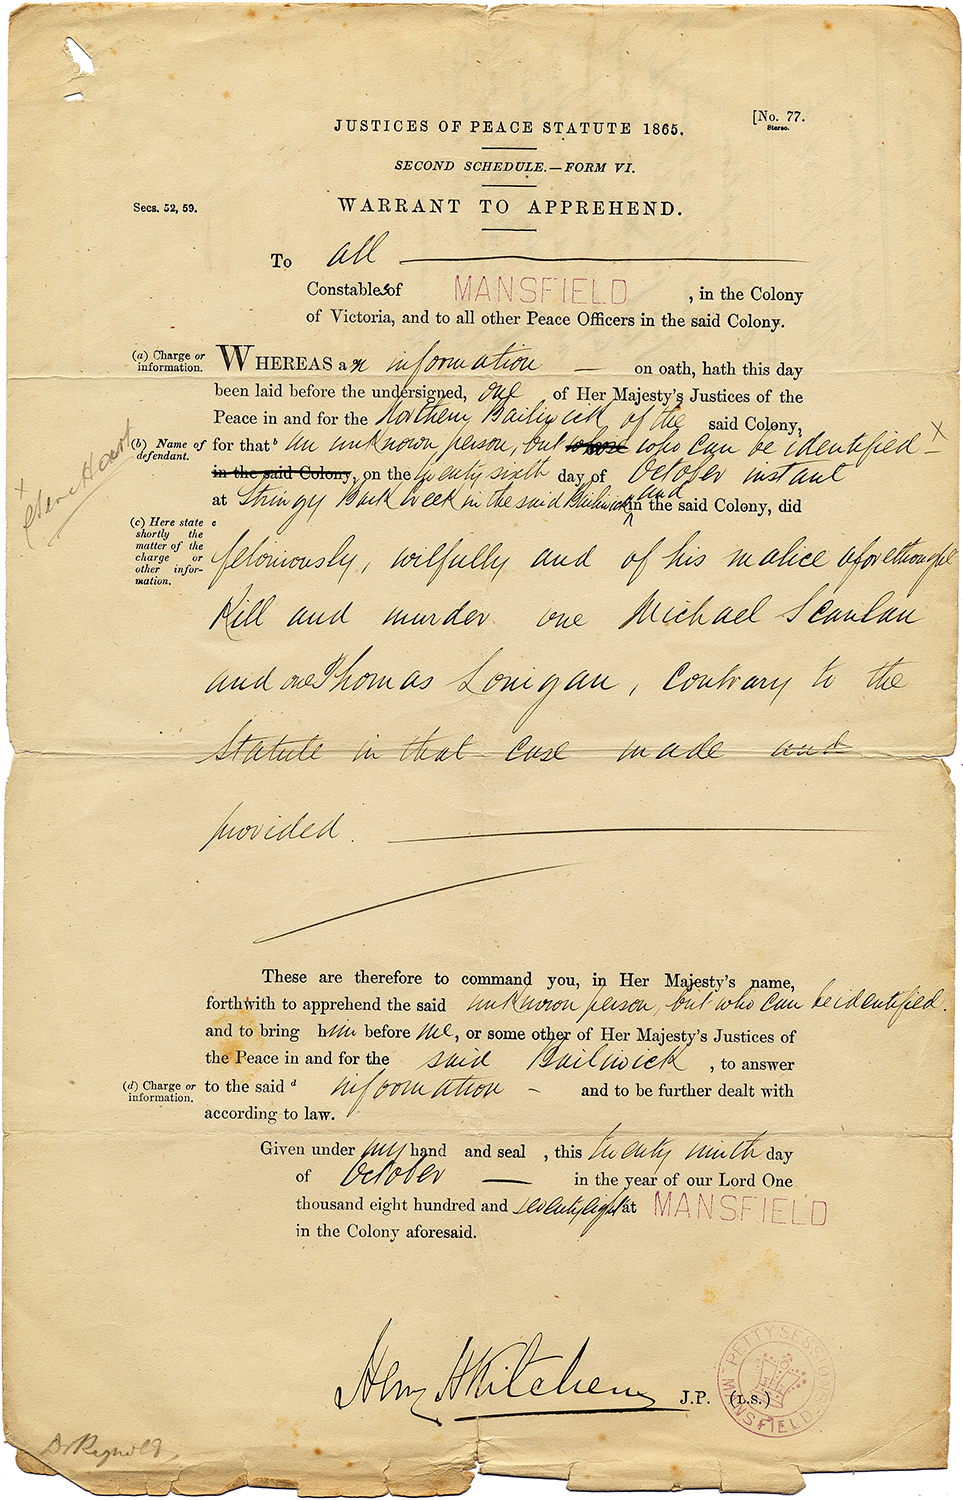 [No. 77.
Stereo.
JUSTICES OF PEACE STATUTE 1865.
SECOND SCHEDULE.—FORM VI.
Secs. 52, 59.
WARRANT TO APPREHEND.
To all
Constables of MANSFIELD , in the Colony
of Victoria, and to all other Peace Officers in the said Colony.
(a) Charge or information.
WHEREAS an information — on oath, hath this day
been laid before the undersigned, one of Her Majesty's Justices of the
Peace in and for the Northern Bailiwick of the said Colony,
(b) Name of defendant.
for that b an unknown person, but whose who can be identified – X
in the said Colony, on the twenty sixth day of October instant
at Stringy Bark Creek in the said Bailiwick and in the said Colony, did
X Steve Hart
(c) Here state shortly the matter of the charge or other information.
c
feloniously, wilfully and of his malice aforethought
Kill and murder one Michael Scanlan
and one Thomas Lonigan, contrary to the
Statute in that case made and
provided.
These are therefore to command you, in Her Majesty's name,
forthwith to apprehend the said unknown person, but who can be identified.
and to bring him before me, or some other of Her Majesty's Justices of
the Peace in and for the said Bailiwick , to answer
(d) Charge or information.
to the said d information – and to be further dealt with
according to law.
Given under my hand and seal , this twenty ninth day
of October — in the year of our Lord One
thousand eight hundred and seventy eight at MANSFIELD
in the Colony aforesaid.
Henry H Kitchen J.P. (L.S.)
PETTY SESSIONS MANSFIELD
Dr Reynolds